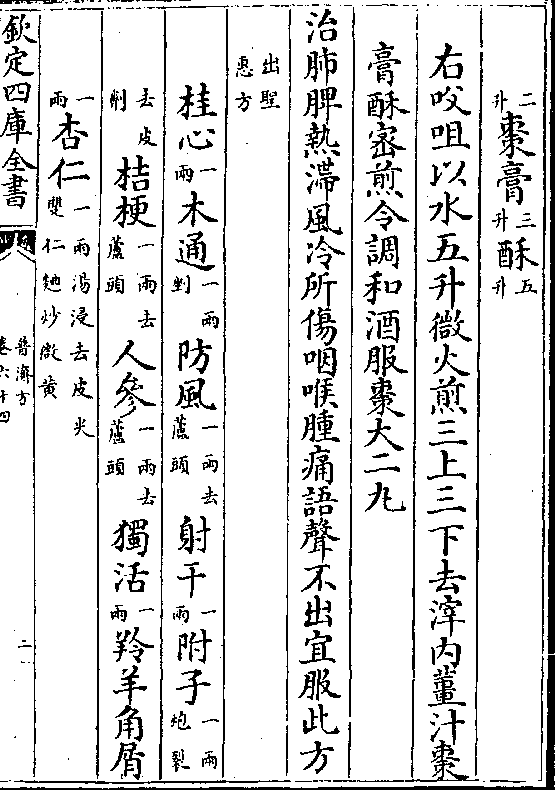 二升棗膏三升酥五升
右㕮咀以水五升微火煎三上三下去滓内薑汁棗
膏酥密煎令調和酒服棗大二丸
治肺脾熱滯風冷所傷咽喉腫痛語聲不出宜服此方
出聖惠方
桂心一兩木通一兩剉防風一兩去蘆頭射干一兩附子一兩炮裂
去皮削桔梗一兩去蘆頭人參一兩去蘆頭獨活一兩羚羊角屑
一兩杏仁一兩湯浸去皮尖雙仁麩炒微黄
欽定四庫全書
普濟方
卷六十四
二